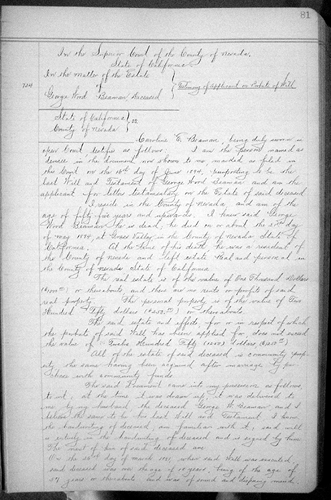 81
In the Superior Court of the County of Nevada,
State of California
In the matter of the Estate
of
George Wood Beaman, Deceased
Testimony of Applicant on Probate of Will
State of California
County of Nevada ss
Caroline E. Beaman, being duly sworn in
open Court testifies as follows: I am the person named as
devisee in the document now shown to me marked as filed in
this Court on the day of June 1894, purporting to be the
last Will and Testament of George Wood Beaman and am the
applicant for letters testamentary on the Estate of said deceased
I reside in the County of Nevada and am of the
age of fifty five years and upwards. I knew said George
Wood Beaman, he is dead, he died on or about the day
of May 1894, at Grass Valley in the County of Nevada State of
California. At the time of his death he was a resident of
the County of Nevada and left estate Real and personal in
the County of Nevada State of California
The real estate is of the value of One Thousand Dollars
or thereabouts, and there are no rents or profits of said
real property. The personal property is of the value of Two
Hundred Fifty dollars or thereabouts.
The said estate and effects for or in respect of which
the probate of said Will has been applied for does not exceed
the value of Twelve Hundred Fifty dollars
All of the estate of said deceased is community prop-
erty the same having been acquired after marriage by
with community funds
The said Document came into my possession as follows
to wit; at the time it was drawn up, it was delivered to
me by my husband the deceased George W Beaman and I
believe the same to be the last Will and Testament. I know
the handwriting of deceased, am familiar with it, said will
is entirely in the handwriting of deceased and is signed by him
The of said deceased are
On the day of March 188 when said Will was executed
said deceased was over the age of 18 years being of the age of
59 years or thereabouts and was of sound and disposing mind